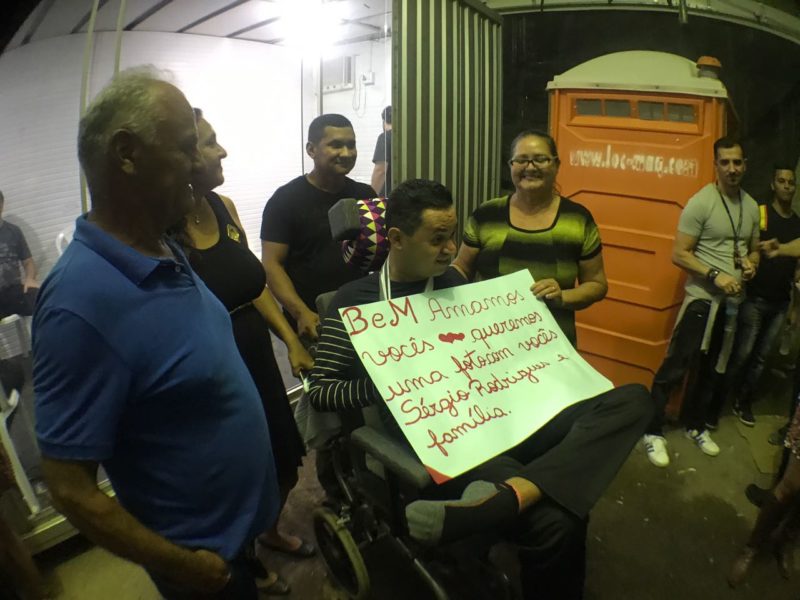 BeM Amamos
vocês queremos
uma foto com vocês
Sérgio Rodrigues e
família.
www.locmaq.com